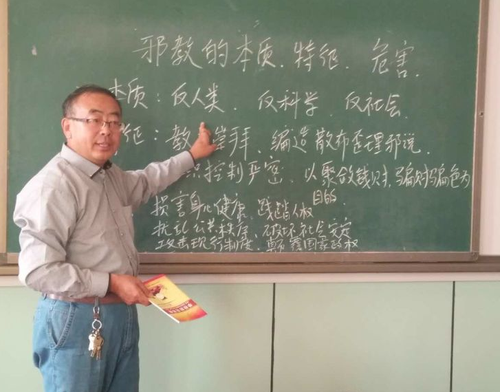 邪教的本质、特征、危害
本质：反人类、反科学、反社会
征：教 崇拜、编造散布歪理邪说、
控制严密、以聚敛钱财，骗财骗色为
目的
损害身心健康、践踏人权
扰乱公共秩序、破坏社会安定
攻击现行制度、颠覆国家政权